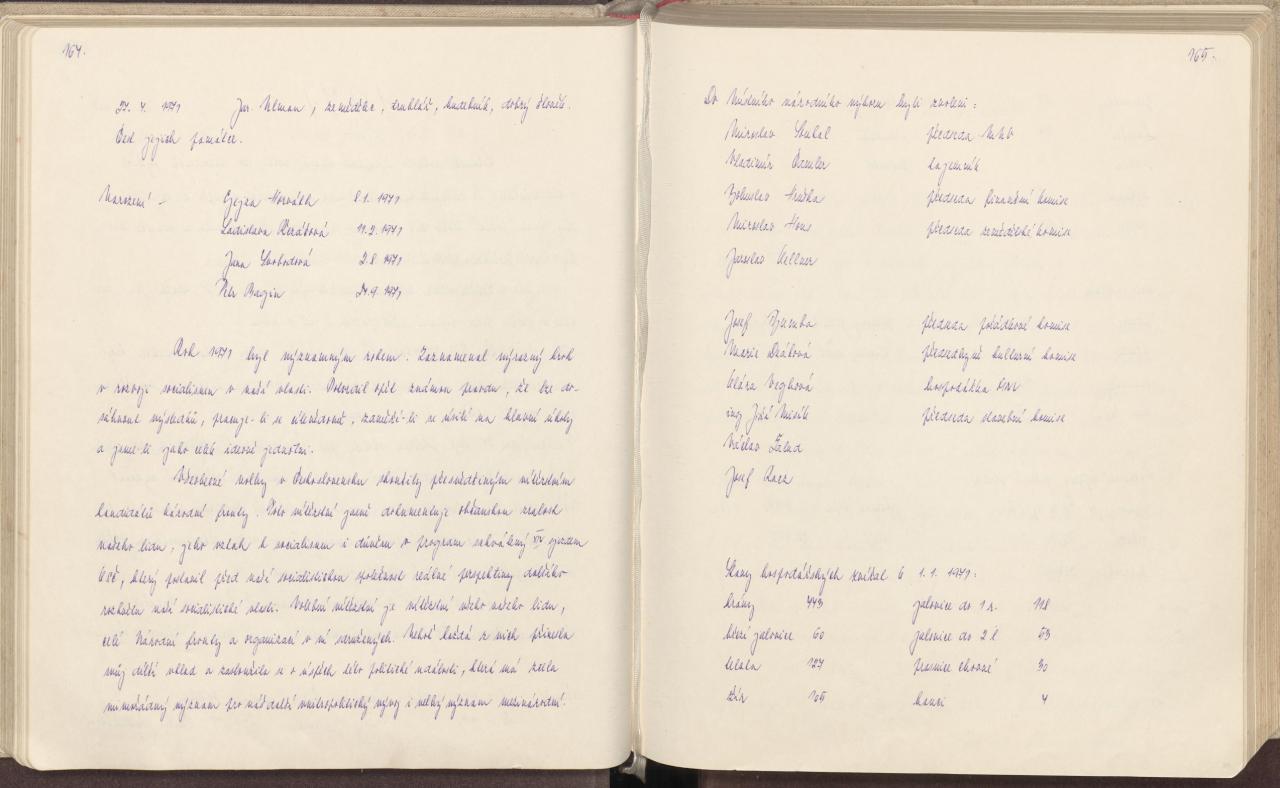 164.
27. 4. 1971 Jar. Ulman, zemědělec, truhlář, hudebník, dobrý člověk.
Čest jejich památce.
Narození - Gejza Horváth 8.1. 1971
Ladislava Beráková 11.2.1971
Jana Svobodová 2.8 1971
Petr Bagin 27.9. 1971
Rok 1971 byl významným rokem. Zaznamenal výrazný krok
v rozvoji socialismu v naší vlasti. Potvrdil opět známou pravdu, že lze do-
sáhnout výsledků, pracuje-li se cílevědomě, zaměří-li se úsilí na hlavní úkoly
a jsme-li jako celek ideově jednotni.
Všeobecné volby v Československu skončily přesvědčivým vítězstvím
kandidátů Národní fronty. Toto vítězství jasně dokumentuje občanskou zralost
našeho lidu, jeho vztah k socialismu i důvěru v program schválený XIV sjezdem
KSČ, který postavil před naší socialistickou společnost reálné perspektivy dalšího
rozkvětu naší socialistické vlasti. Volební vítězství je vítězství všeho našeho lidu,
celé Národní fronty a organizací v ní sdružených. Neboť každá z nich přinesla
svůj dílčí vklad a zasloužila se o úspěch této politické události, která má zcela
mimořádný význam pro náš další vnitropolitický vývoj i velký význam mezinárodní.
165.
Do Místního národního výboru byli zvoleni:
Miroslav Soukal předseda MNV
Vladimír tajemník
Bohuslav Hruška předseda finanční komise
Miroslav Hons předseda zemědělské komise
Jaroslav Kellner
Josef předseda pořádkové komise
Marie předsedkyně kulturní komise
Klára Veghová hospodářka MNV
ing Jiří Misík předseda stavební komise
Václav Žalud
Josef Racz
Stavy hospodářských zvířat k 1.1. 1971:
krávy 443 jalovice do 1 r. 118
březí jalovice 60 jalovice do 2 l. 53
telata 127 prasnice chovné 30
žír 105 kanci 4